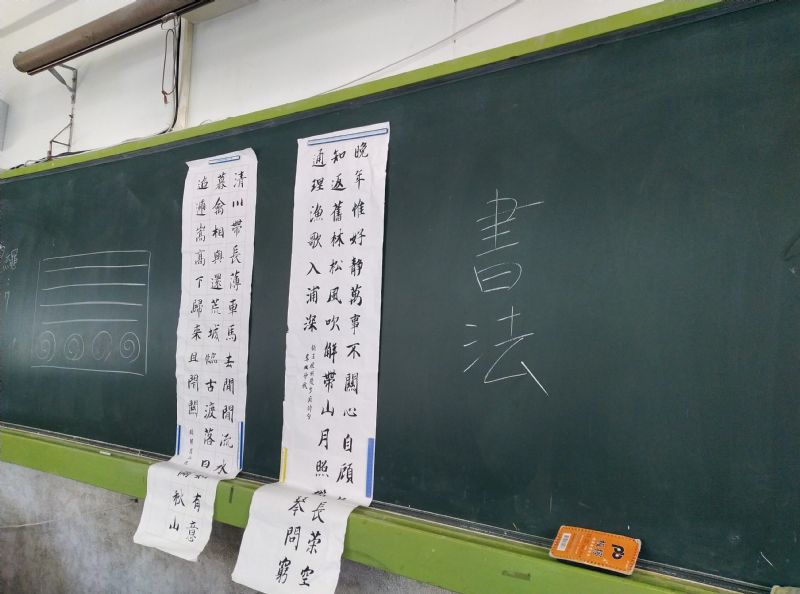 書法
晚年惟好靜萬事不關心自顧長策空
知返舊林松風吹解帶山月照琴問窮
通理漁歌入浦深
清川帶長薄車馬去閒閒流水有意
暮禽相與還荒城臨古渡落日滿秋山
迢遞嵩高下歸來且閉關